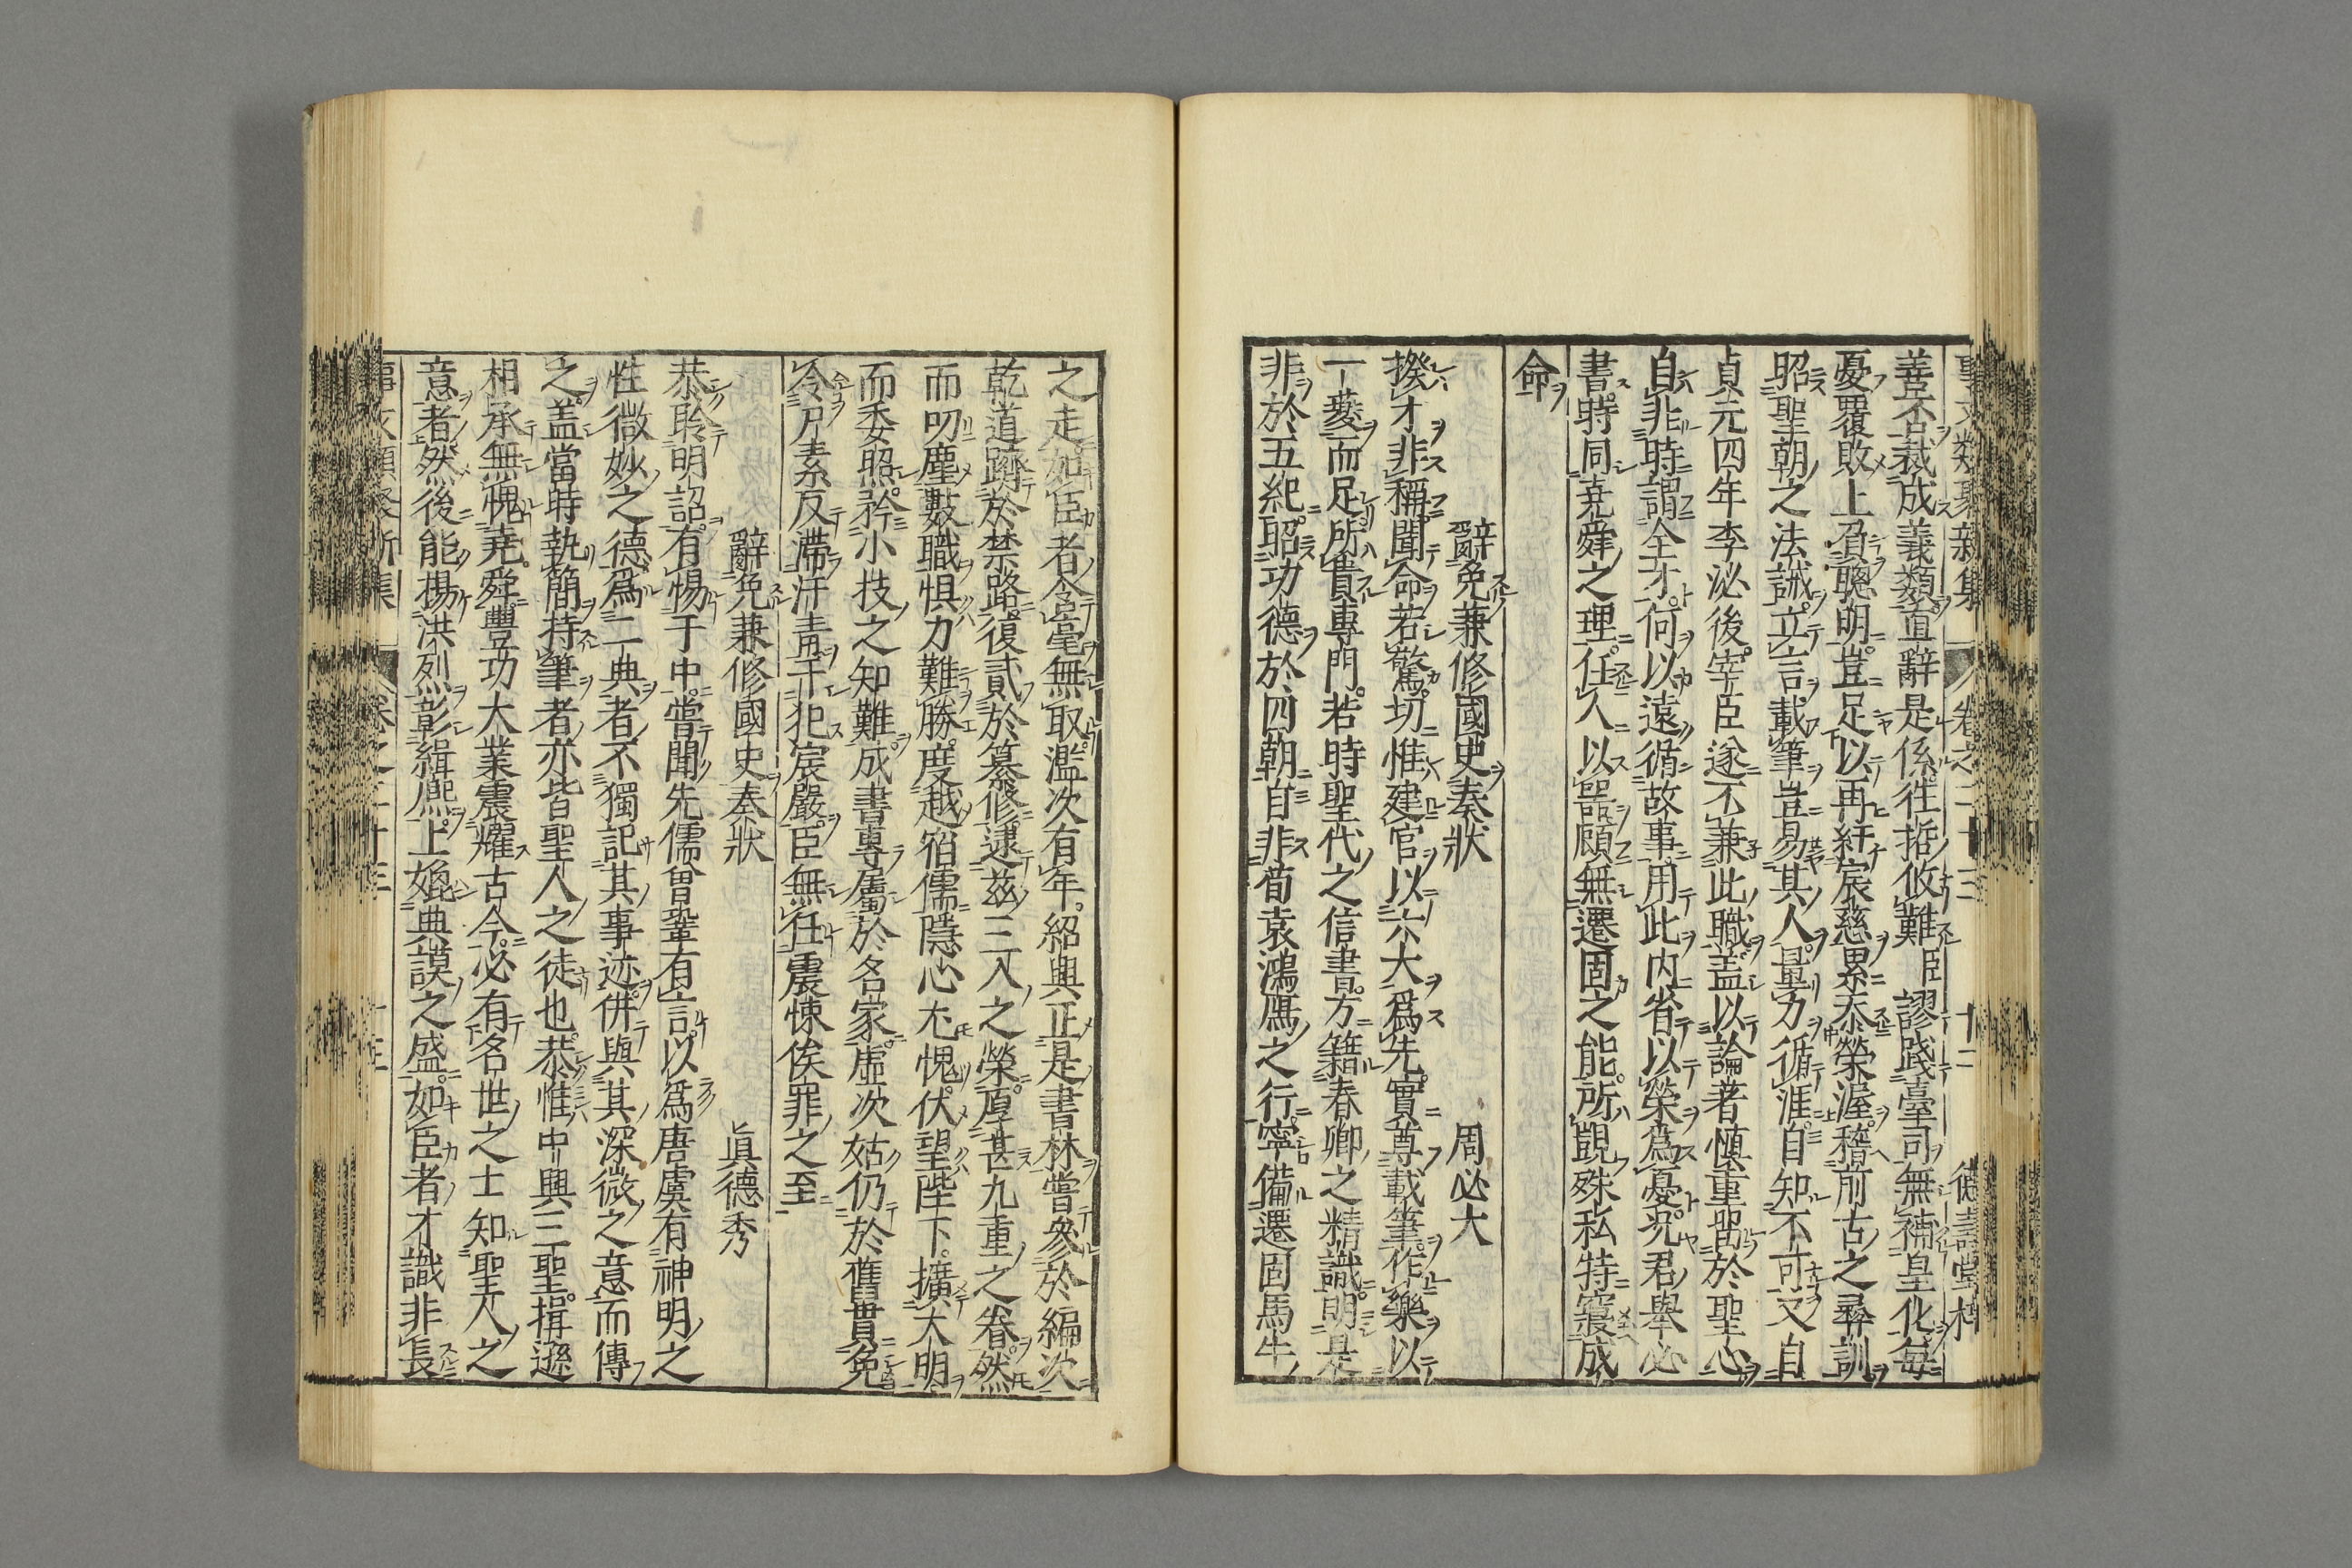 事文類聚新集 卷之二十三 十二 德壽堂梓
善否裁成義類直辭是係往哲攸難臣謬踐臺司無補皇化每
憂覆敗上負聰明豈足以再紆宸慈累忝榮渥稽前古之彝訓
昭聖朝之法誡立言載筆豈易其人量力循涯自知不可文自
貞元四年李泌後宰臣遂不兼此職蓋以論著慎重留於聖心
自非時謂全才何以遠循故事用此内省以榮爲憂況君舉必
書時同堯舜之理任人以器顧無遷固之能所覬殊私特寢成
命
辭免兼修國史奏狀 周必大
揆才非稱聞命若驚切惟建官以六大爲先實尊載筆作樂以
一夔而足所貴專門若時聖代之信書方籍春卿之精識明是
非於五紀昭功德於四朝自非荀袁鴻鴈之行寧備遷固馬牛
之走如臣者含毫無取濫次有年紹興正是書林嘗參於編次
乾道躋於禁路復貳於纂修逮茲三入之榮厚甚九重之眷然
而叨塵數職惧力難勝度越宿儒隱心尤愧伏望陛下擴大明
而委照矜小技之知難成書專屬於名家虛次姑仍於舊貫免
令尺素反滞汗靑干犯宸嚴臣無任震悚俟罪之至
辭免兼修國史奏狀 眞德秀
恭聆明詔有惕于中嘗聞先儒曾鞏有言以爲唐虞有神明之
性微妙之德爲二典者不獨記其事迹併與其深微之意而傳
之盖當時執簡持筆者亦皆聖人之徒也恭惟中興三聖揖遜
相承無愧堯舜豐功大業震耀古今必有名世之士知聖人之
意者然後能揚洪烈彰緝熈上媲典謨之盛如臣者才識非長
事文類聚新集 卷之二十三 十三